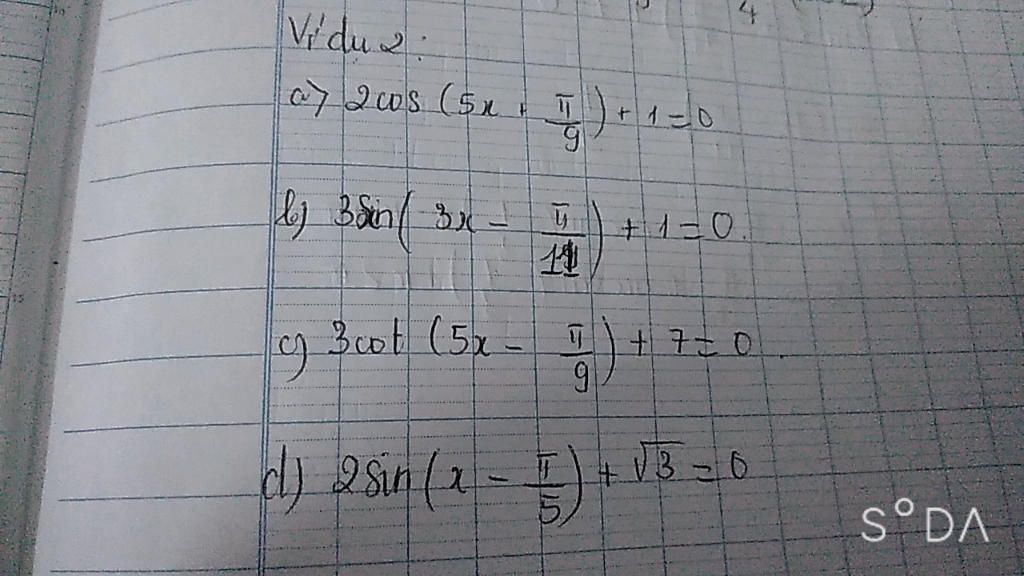 Ví dụ 2:
a) 2cos(5x + π/9) + 1 = 0
b) 3Sin(3x − π/11) + 1 = 0.
c) 3cot(5x − π/9) + 7 = 0.
d) 2sin(x − π/5) + √3 = 0
S°DA